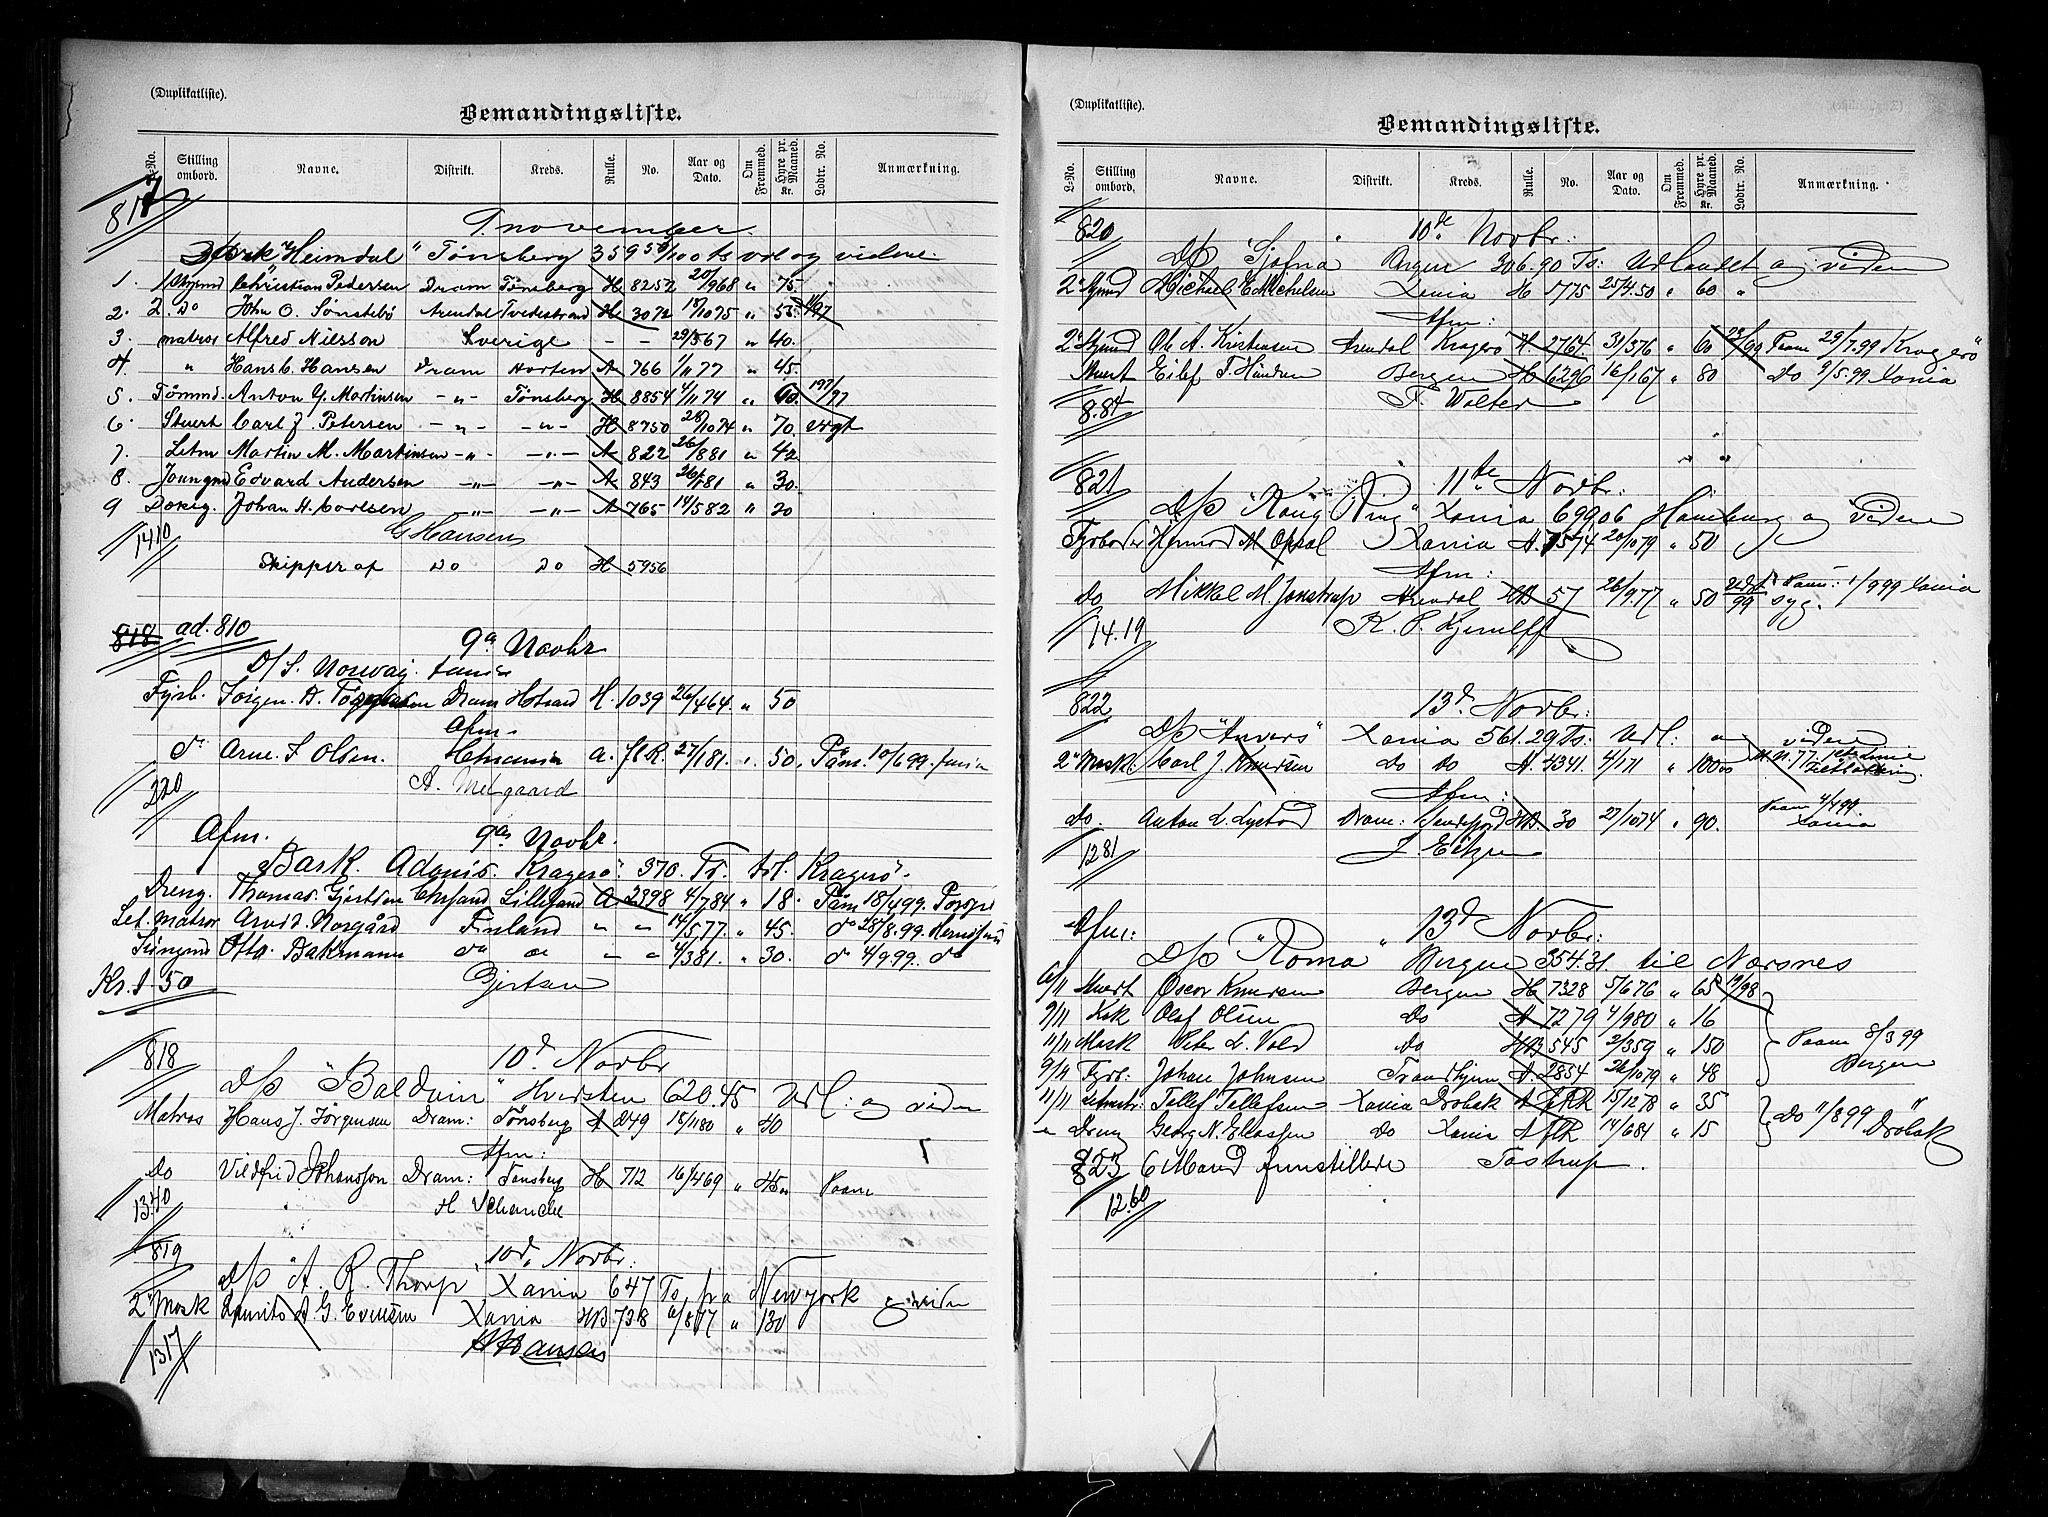 (Duplikatliste).
Bemandingsliste.
L-No. Stilling ombord. Navne. Distrikt. Kreds. Rulle. No. Aar og Dato. Om Fremmed. Hyre pr. Maaned. Kr. Lodtr. No. Anmærkning.
817
9 november
Bark "Heimdal" Tønsberg 359 50/100 ts vol og videre
1. 1 Styrmd Christian Pedersen Dram Tønsberg H 8252 20/968 " 75.
2. 2. Do John O. Sønstebö Arendal Tvedestrand H 3072 18/1075 " 55.
3. matros Alfred Nilsson Sverige - - 29/567 " 40.
4. " Hans C. Hansen Dram Horten A 766 1/11 77 " 45.
5. Tømmd Anton G. Martinsen -"- Tønsberg H 8854 4/11 74 " 60. 197/97
6. Stuert Carl J. Petersen -"- -"- H 8750 28/1074 " 70. vrgt
7. Letm Martin M. Martinsen -"- -"- A 822 26/881 " 42
8. Joungmd Edvard Andersen -"- -"- A 843 26/181 " 30.
9 Dæksg. Johan H. Carlsen -"- -"- A 765 14/582 " 20
1410
G Hansen
Skipper af Do Do H 5956
818 ad. 810
9a Novbr
D/S. Norway. Xania
Fyrb. Jørgen. A. Dram Holmestrand H. 1039 26/464. " 50
Afm.
do Arne. S. Olsen. A. fl R. 27/181. " 50. Påm. 10/699. Xania
220
A. Melgaard
Afm. 9a Novbr.
Bark. Adonis. Kragerø. 370. Ts. tol. Kragerø.
Dreng. Thomas. Gjertsen Chrsand Lillesand A 2398 4/784 " 18. Påm 18/499.
Let. matros Arvid. Norgård Finland " " 14/577. " 45. do 28/8.99.
Jüngmd Otto. Bakmann do do " " 4/381. " 30. do 4/999. do
Kr. 1-50
Gjertsen
818
10d Novbr
D/S "Baldvin" Hvidsten 620.45 Udl: og viden
Matros Hans J. Jørgensen Dram: Tönsberg A 249 15/1180 " 40
Afm:
Do Vildfrid Johansson Dram: Tønsberg H 712 16/469 " 45 Paam
1340
H Schanche
819
10d. Novbr:
D/S "A. R. Thorp" Xania 647 Ts, fra Newyork og viden
2 Mask Laurits A. G. Evensen Xania HB 738 " 130
1317
H Hansen
(Duplikatliste).
Bemandingsliste.
L-No. Stilling ombord. Navne. Distrikt. Kreds. Rulle. No. Aar og Dato. Om Fremmed. Hyre pr. Maaned. Kr. Lodtr. No. Anmærkning.
820
10de Novbr:
D/S "Sjofna" Bergen 306.90 Ts: Udlandet og viden
2 Styrmd Michael E Michelsen Xania H 1775 25/4.50 " 60 "
Afm:
2 Styrmd Ole A. Kristensen Arendal Kragerö H. 2764. 31/376 " 60 Paam 29/7.99 Kragerö
Stuert Eilef T. Bergen H 6296 16/167 " 80 Do 9/5.99 Xania
8.84
F. Wolter
821
11te Novbr:
D/S "Kong Ring" Xania 699.06 Hamburg og videre
Fyrböder M Opsal Xania A. 1574 20/1079 " 50
Afm:
Do Mikkel M. Jonstrup Arendal HB 57 26/977 " 50 udgt 99 Paam: 1/999 Xania syg.
14.19
K. P. Kjerulff
822
13d. Novbr:
D/S "Anvers" Xania 561.29 Ts: Udl: og videre
2 Mask. Carl J. Knudsen do do A. 4341. 4/171 " 100
Afm:
do. Anton L. Dram: Sandefjord HB 30 27/1074 " 90. Paam 4/499 Xania
1281
Afm: 13d Novbr:
D/S "Roma" Bergen 354.31. til Narsnes
10/11 Stuert Oscar Knudsen Bergen H 7328 5/676 " 65 19/98
9/11 Kok Olaf Olsen Do A 7279 4/980 " 16
11/11 Mask Peter L. Vold Do HB 545 2/359 " 150 Paam 8/3 99 Bergen
9/11 Fyrb: Johan Johnsen Trondhjem A. 2854 26/1079 " 48
11/11 Letmtr: Tellef Tellefsen Xania Dröbak A flR 15/1278 " 35
" Dreng Georg N. Eliassen Do Xania A flR 14/681 " 15 Do 11/899 Dröbak
823 6 Mand Tostrup.
12.60